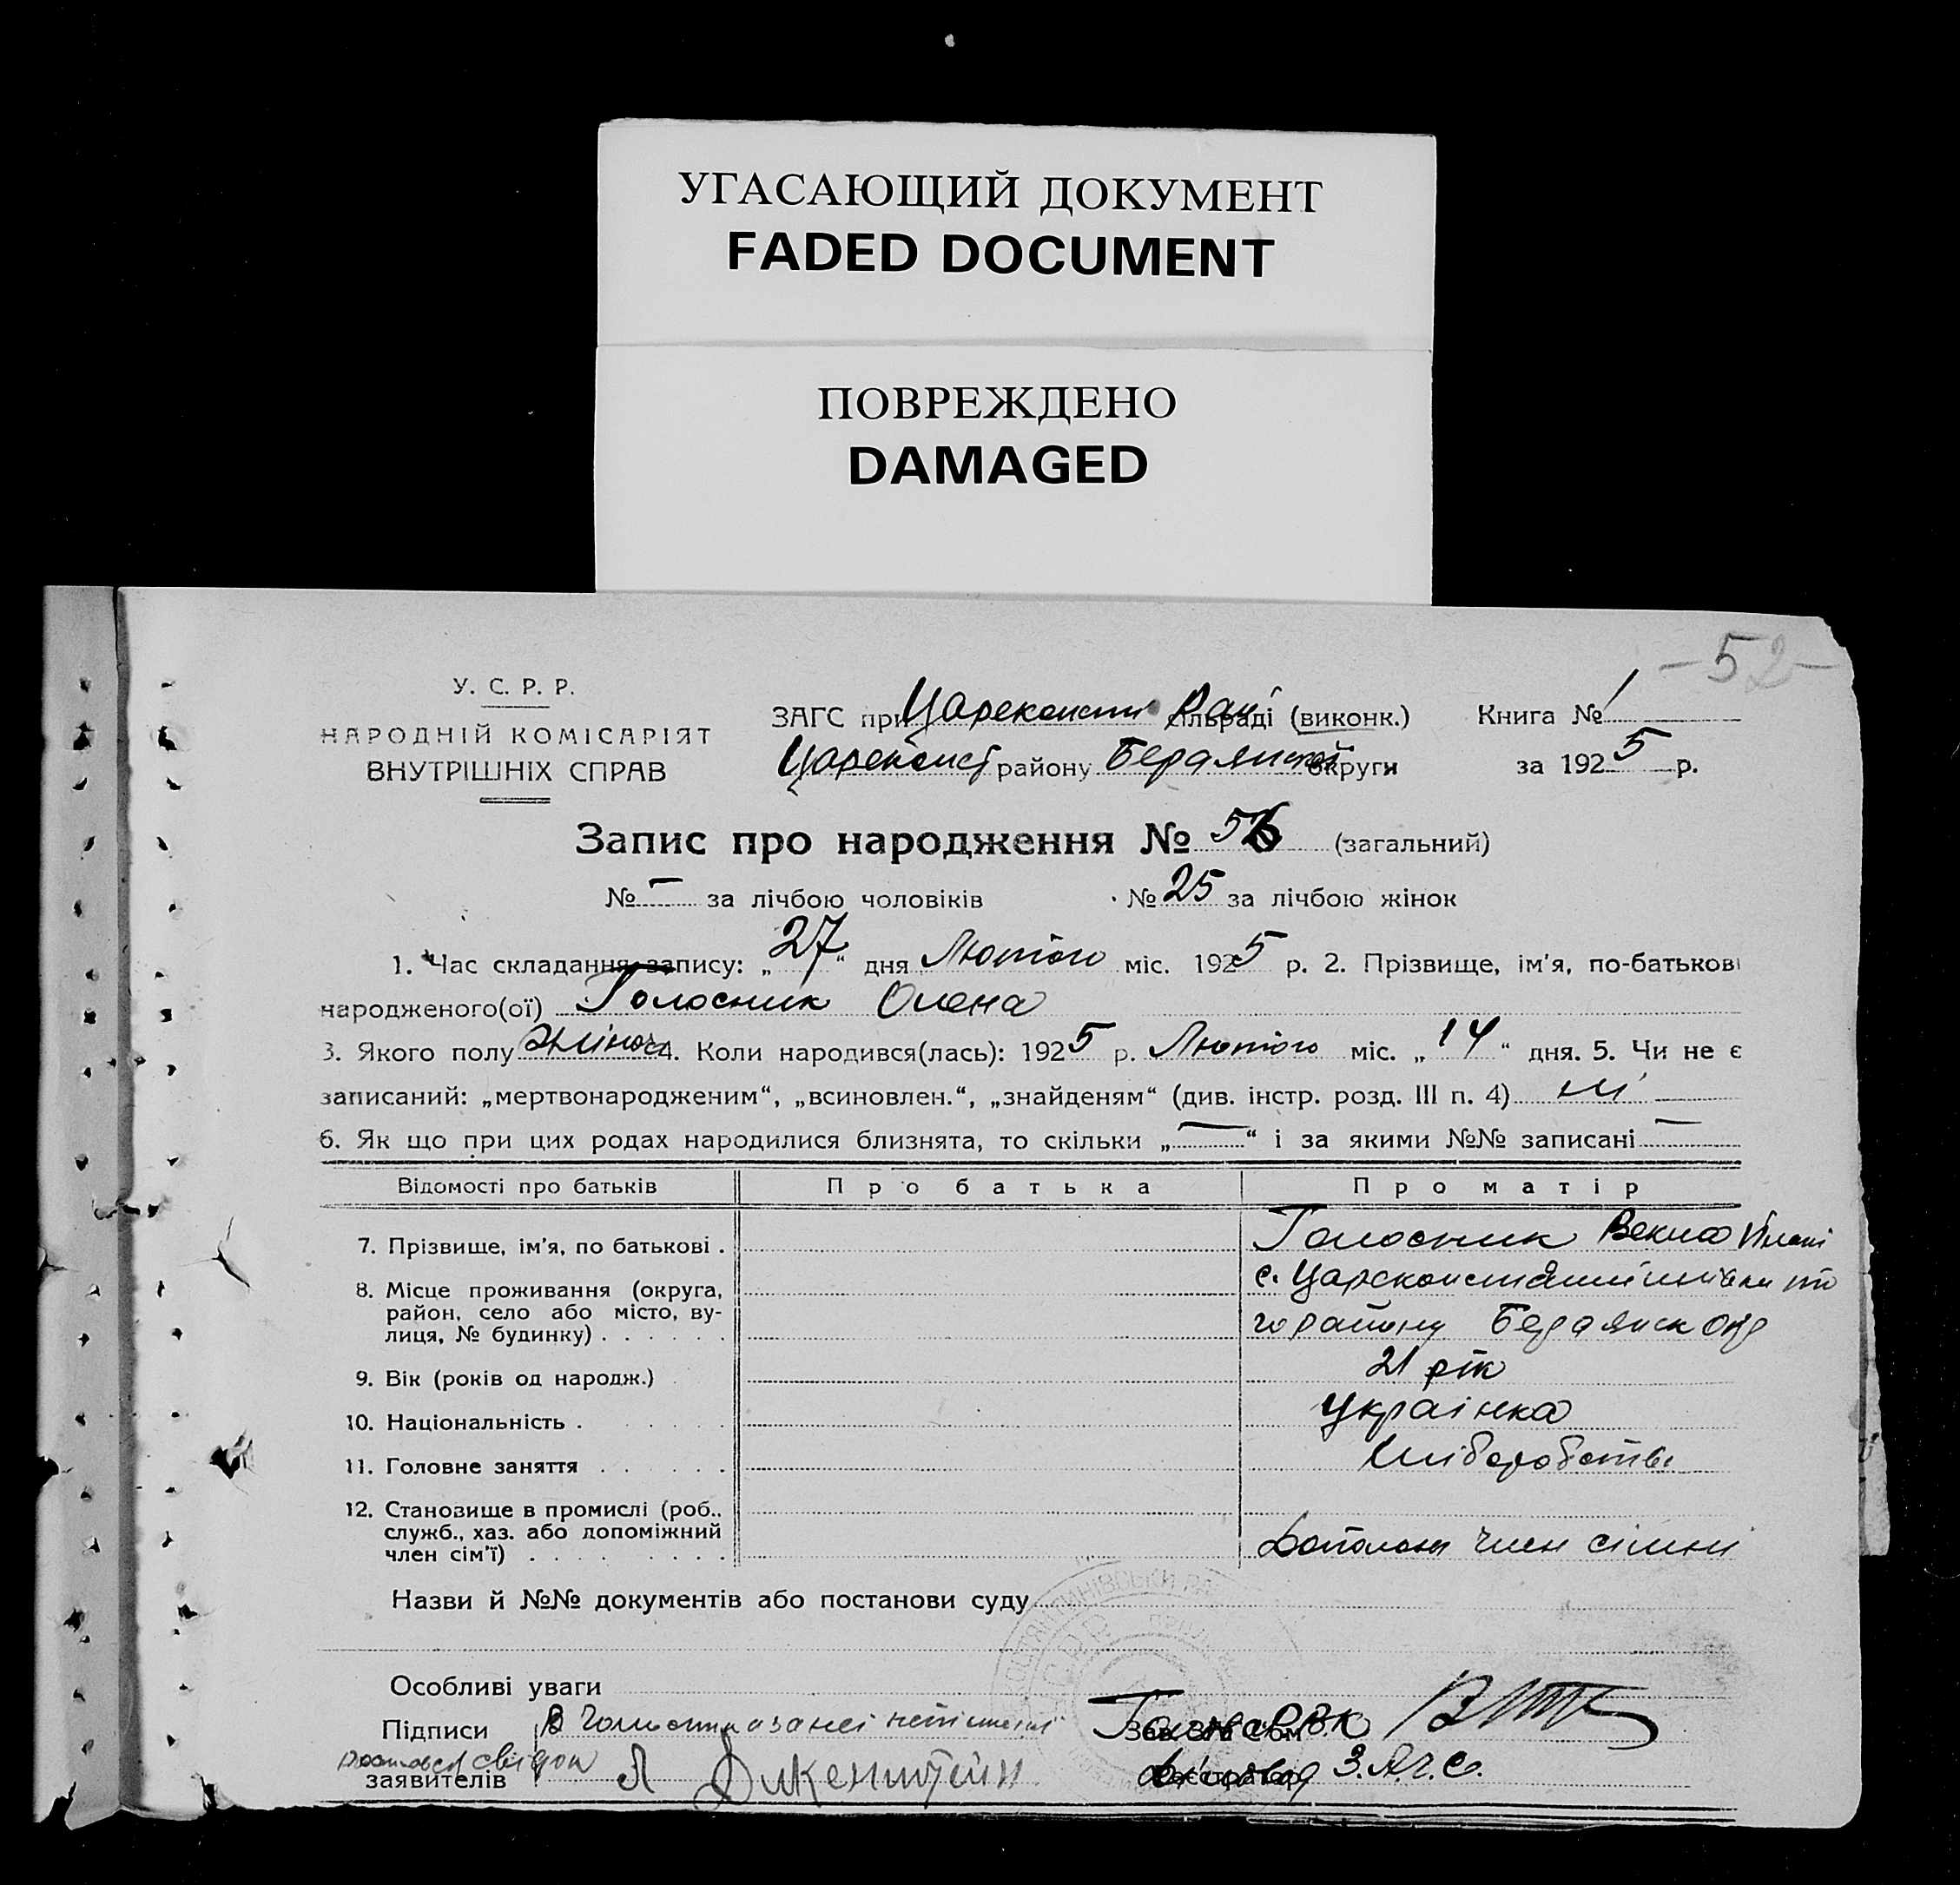 УГАСАЮЩИЙ ДОКУМЕНТ
FADED DOCUMENT
ПОВРЕЖДЕНО
DAMAGED
-52-
У. С. Р. Р.
НАРОДНІЙ КОМІСАРІЯТ
ВНУТРІШНІХ СПРАВ
ЗАГС при Цареконст Рай сільраді (виконк.) Книга № 1
Цареконст району Бердянської округи за 1925 р.
Запис про народження № 56 (загальний)
№ — за лічбою чоловіків № 25 за лічбою жінок
1. Час складання запису: „27“ дня Лютого міс. 1925 р. 2. Прізвище, ім'я, по-батькові
народженого(ої) Голосник Олена
3. Якого полу жіноч 4. Коли народився(лась): 1925 р. Лютого міс. „14“ дня. 5. Чи не є
записаний: „мертвонародженим“, „всиновлен.“, „знайденям“ (див. інстр. розд. III п. 4) ні
6. Як що при цих родах народилися близнята, то скільки „—“ і за якими №№ записані —
Відомості про батьків Про батька Про матір
7. Прізвище, ім'я, по батькові . Голосник
8. Місце проживання (округа, район, село або місто, вулиця, № будинку) . . . . . . с.
го району Бердянск окр
9. Вік (років од народж.) 21 рік
10. Національність . Українка
11. Головне заняття . . . . . . Хліборобство
12. Становище в промислі (роб., служб., хаз. або допоміжний член сім'ї) . . . . . . . . член сімні
Назви й №№ документів або постанови суду
Особливі уваги
Підписи
заявителів свідок
З.А.г.С.